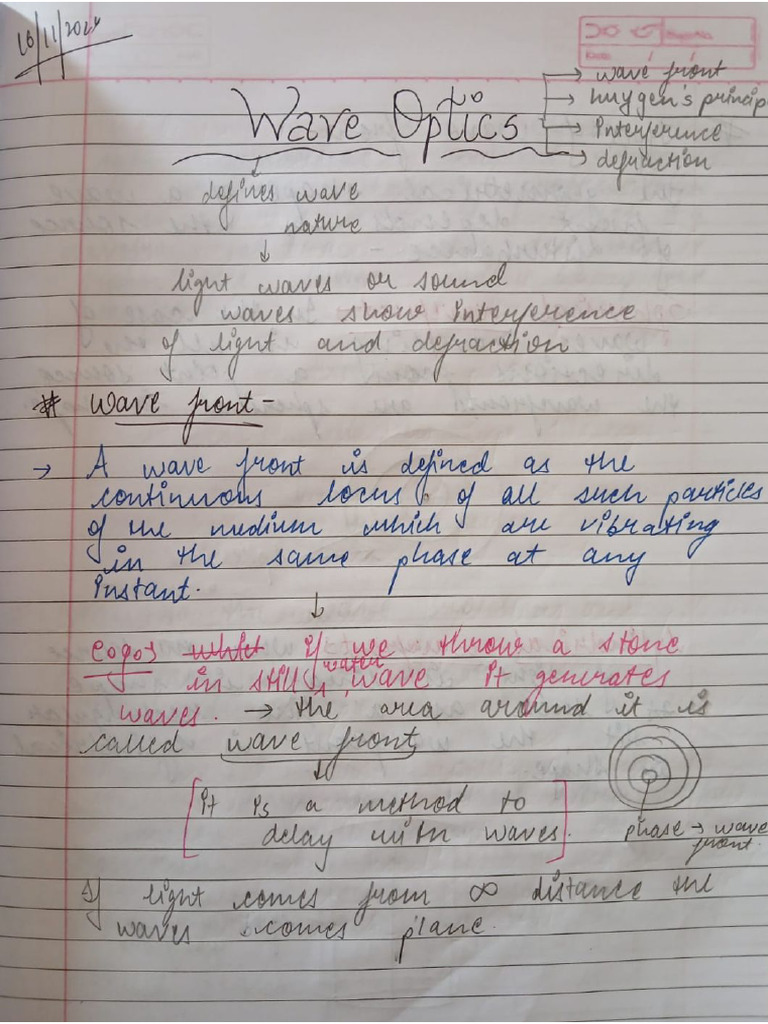 16/11/2024
Wave Optics
→ wave front
→ huygen's princip
→ Interference
→ defraction
↓
defines wave
nature
↓
light waves or sound
waves show interference
of light and defraction
# Wave front -
→ A wave front is defined as the
continuous locus of all such particles
of the medium which are vibrating
in the same phase at any
instant.
↓
if we throw a stone
water
in still wave It generates
waves. → the area around it is
called wave front
↓
[It is a method to
delay with waves.]
phase → wave
front.
If light comes from ∞ distance the
waves comes plane.